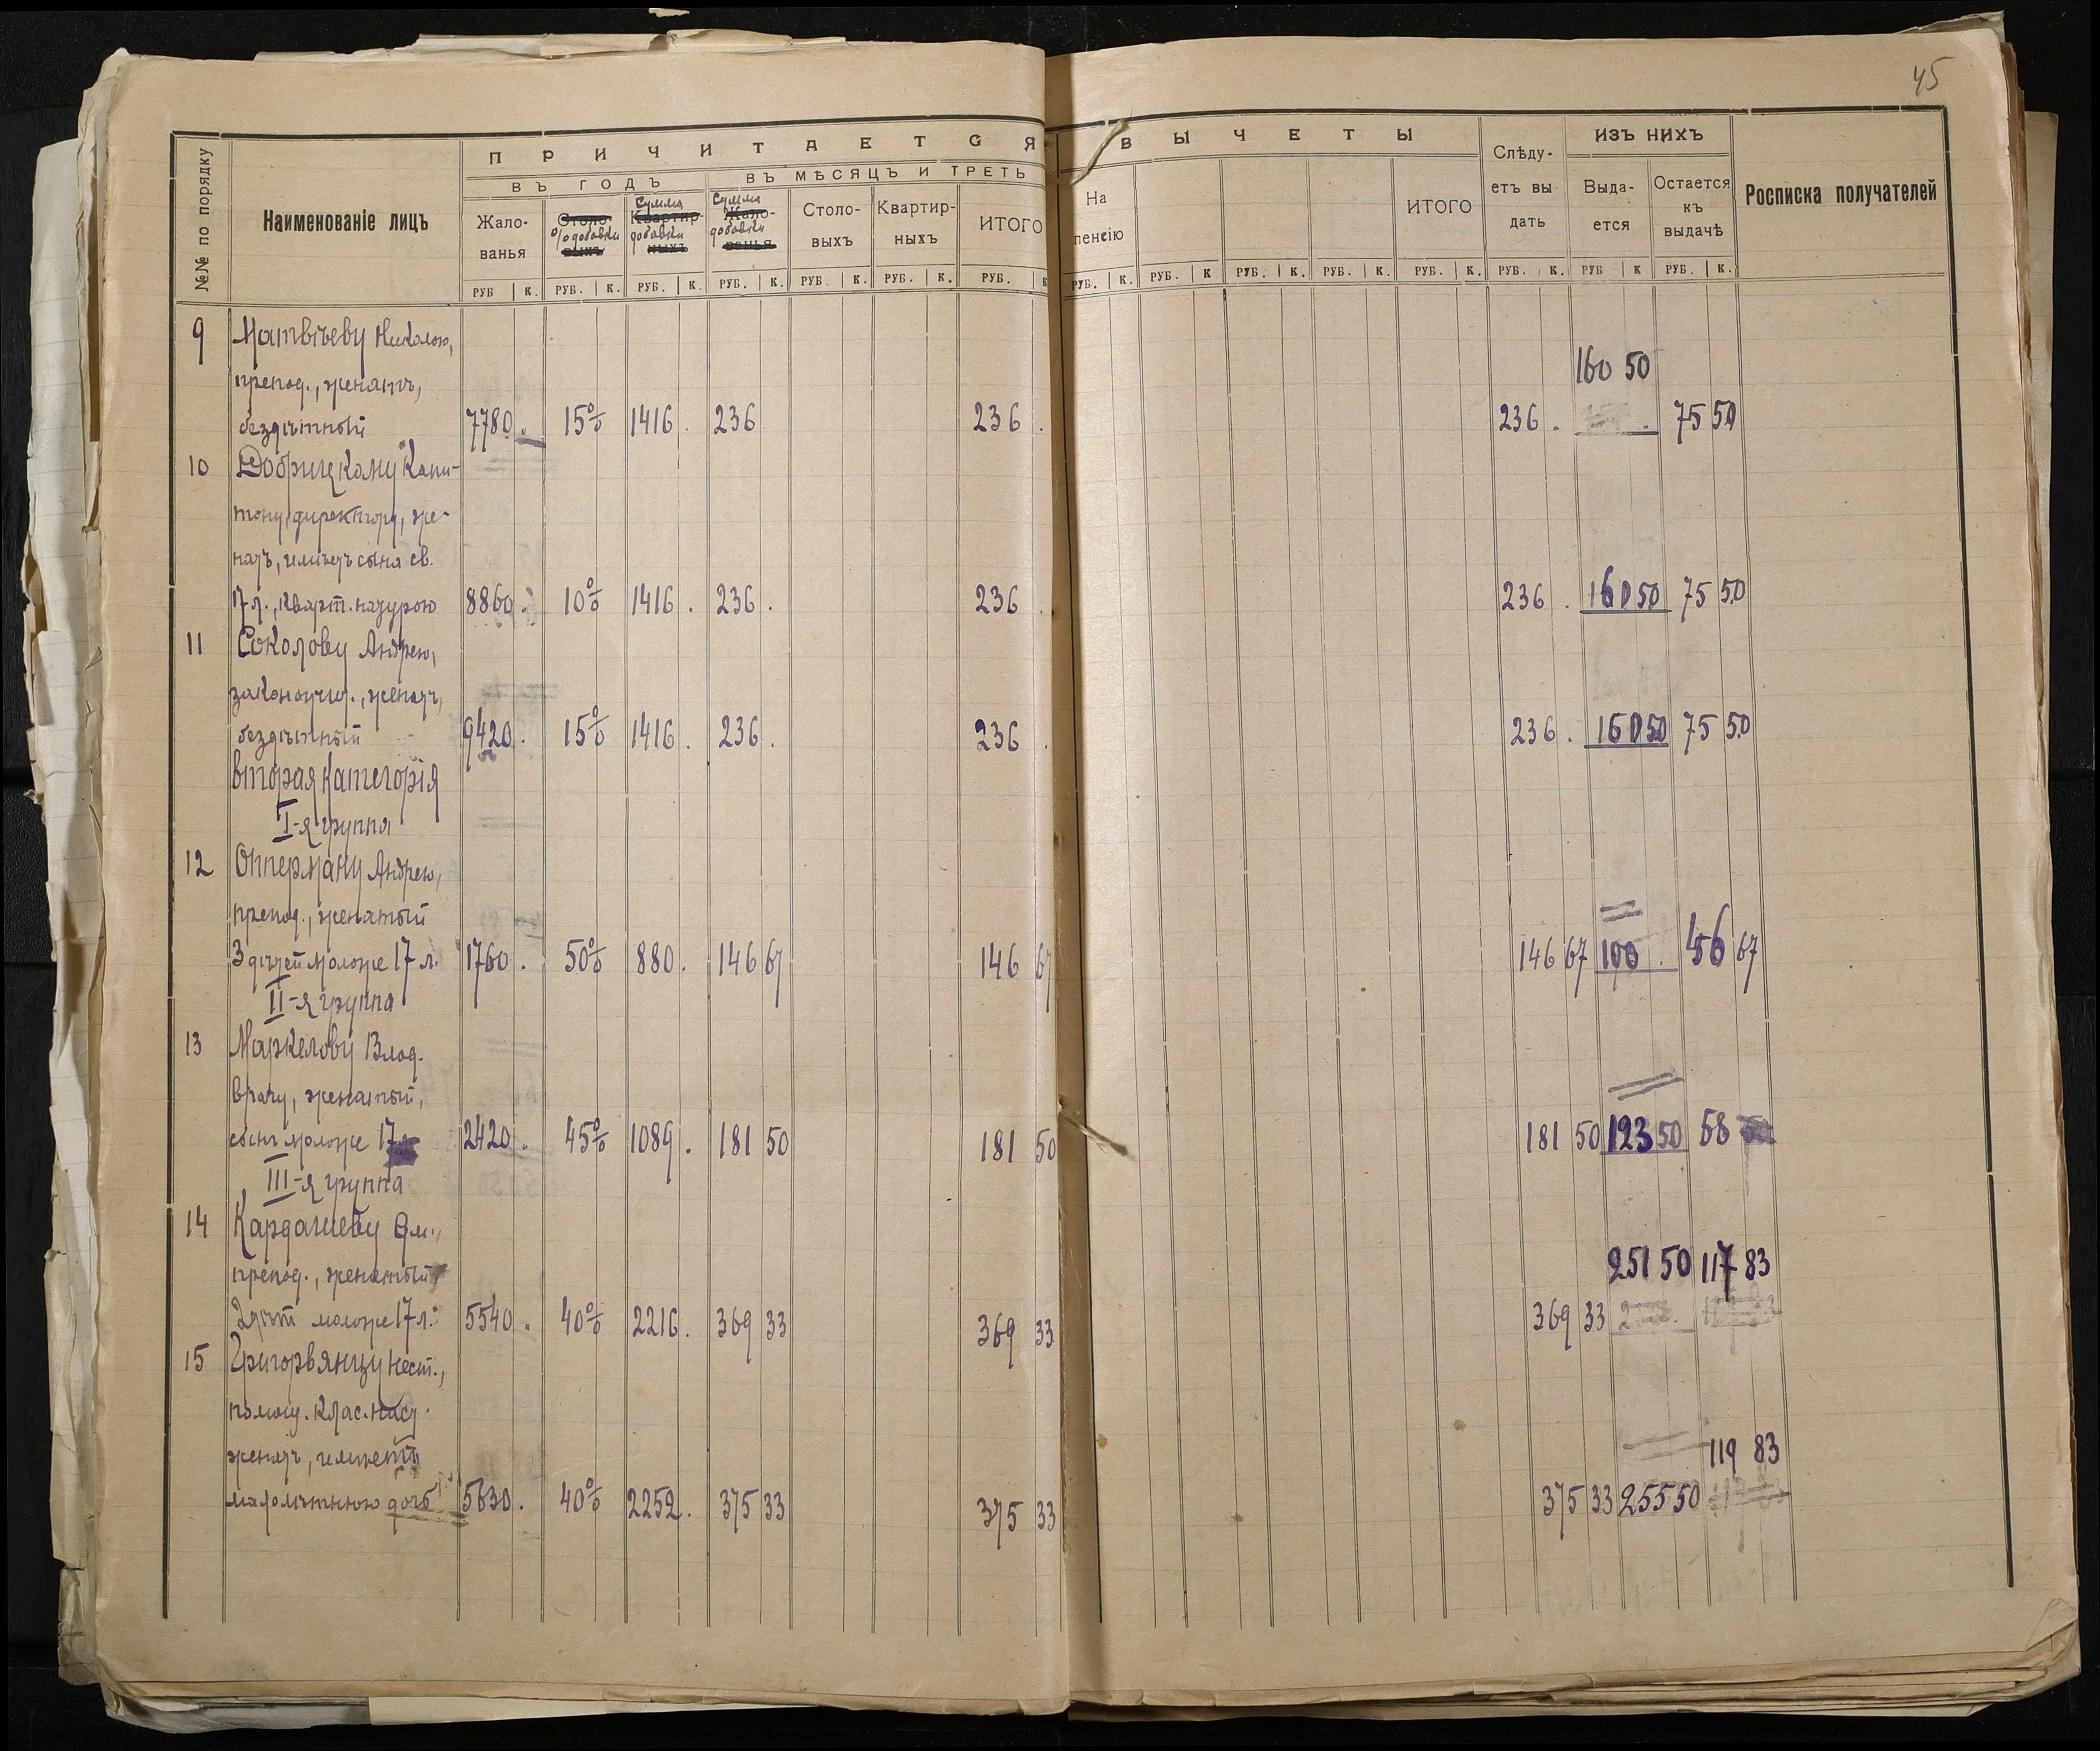 45
№№ по порядку
Наименованіе лицъ
ПРИЧИТАЕТСЯ
ВЪ ГОДЪ
ВЪ МѢСЯЦЪ И ТРЕТЬ
Жало-
ванья
Столо-
выхъ
% добавки
Квартир-
ныхъ
Сумма
добавки
Жало-
ванья
Сумма
добавки
Столо-
выхъ
Квартир-
ныхъ
ИТОГО
ВЫЧЕТЫ
На
пенсію
ИТОГО
Слѣду-
етъ вы
дать
ИЗЪ НИХЪ
Выда-
ется
Остается
къ
выдачѣ
Росписка получателей
РУБ К. РУБ. К. РУБ. К. РУБ. К. РУБ. К. РУБ. К. РУБ. К
РУБ. К. РУБ. К РУБ. К. РУБ. К. РУБ. К. РУБ. К. РУБ К РУБ. К.
9 Матвѣеву Николаю,
препод., женатъ, 160 50
бездѣтный 7780 . 15% 1416 . 236 236 . 236 . 75 50
10 Добрицкому Капи-
тону, директору, же-
натъ, имѣетъ сына св.
17 л., кварт. натурою 8860 . 10% 1416 . 236 . 236 . 236 . 160 50 75 50
11 Соколову Андрею,
законоучит., женатъ,
бездѣтный 9420 . 15% 1416 . 236 . 236 . 236 . 160 50 75 50
Вторая категорія
I-я группа
12 Опперману Андрею,
препод., женатый
3 дѣтей моложе 17 л. 1760 . 50% 880 . 146 67 146 67 146 67 100 . 46 67
II-я группа
13 Маркелову Влад.
врачу, женатый,
сынъ моложе 17 2420 . 45% 1089 . 181 50 181 50 181 50 123 50 58
III-я группа
14 Кардашеву
препод., женатый 251 50 117 83
2 дѣт моложе 17 л. 5540 . 40% 2216 . 369 33 369 33 369 33
15 Григорьянцу Нест.,
помощ. клас. наст.
женатъ, имѣетъ 119 83
малолѣтнюю дочь 5630 . 40% 2252 . 375 33 375 33 375 33 255 50